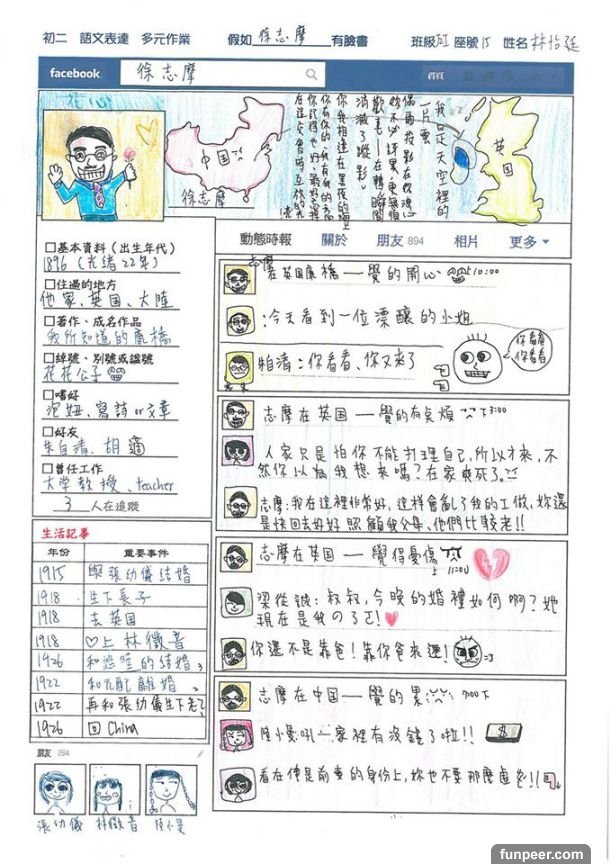 初二 語文表達 多元作業 假如 徐志摩 有臉書 班級 座號15 姓名 林怡廷
facebook 徐志摩 首頁
花心
中国
徐志摩
英国
我是天空裡的
一片雲
偶爾投影在你的波心
你不必訝異更無須
歡喜—在轉瞬間
消滅了蹤影
你我相逢在黑夜的海上
你有你的,我有我的,方向
你記得也好,最好忘掉
在這交會時互放的光
動態時報 關於 朋友 894 相片 更多
□基本資料(出生年代)
1896(光緒22年)
□住過的地方
他家、英国、大陸
□著作、成名作品
我所知道的康橋
□綽號、別號或諡號
花花公子
□嗜好
泡妞、寫詩or文章
□好友
朱自清、胡適
□曾任工作
大学教授、teacher
3 人在追蹤
生活記事
年份 重要事件
1915 與張幼儀結婚
1918 生下長子
1918 去英国
1918 ♡上林徽音
1926 和 的結婚
1922 和元配離婚
1922 再和張幼儀生下老2
1926 回China
朋友 894
張幼儀 林徽音 陸小曼
志摩在英国康橋—覺的開心 上10:00
:今天看到一位漂釀的小姐
柏清:你看看、你又來了
你看看
你看看
志摩在英国—覺的有夠煩 下3:00
人家只是怕你不能打理自己,所以才來,不
然你以為我想來嗎?在家爽死了。
志摩:我在這裡非常好,這樣會亂了我的工做,妳還
是快回去好好照顧我父母、他們比較老!!
志摩在英国—覺得憂傷 上11:00
梁從誡:叔叔,今晚的婚禮如何啊?她
現在是我の了ㄛ!
你還不是靠爸!靠你爸來選! =3
志摩在中国—覺的累 下7:00
陸小曼吼—家裡有沒錢了啦!! $
看在俺是前妻的身份上,妳也不要那麼虛榮!!
funpeer.com